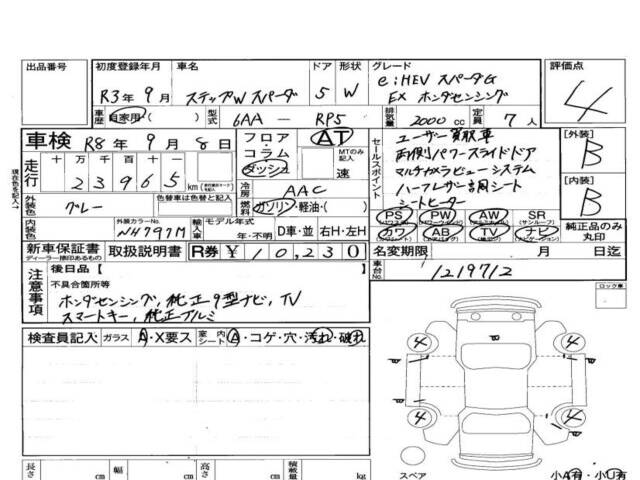 出品番号 初度登録年月 車名 ドア 形状 グレード 評価点
R3年9月 ステップW スパーダ 5 W e:HEV スパーダG
EX ホンダセンシング
4
車歴 自家用・( ) 型式 6AA － RP5 排気量 2000 cc 定員 7人
車検 R8年 9月 8日 フロア・コラム・ダッシュ AT MTのみ記入 速
走行 十 万 千 百 十 一
2 3 9 6 5 km
冷房 AAC
外装色 グレー 色替車は色替と記入 燃料 ガソリン・軽油・( )
内装色 外装カラーNo. NH797M 輸入車 モデル年式 年・不明 D車・並 右H・左H
新車保証書 取扱説明書 R券 ¥10,230
ディーラー捺印あるもの
セールスポイント
ユーザー買取車
両側パワースライドドア
マルチカメラビューシステム
ハーフレザー調シート
シートヒーター
【外装】
B
【内装】
B
PS PW AW SR (サンルーフ)
カワ AB TV ナビ
純正品のみ丸印
名変期限 月 日迄
車台No. 1219712
注意事項
後日品【 】
不具合箇所等
ホンダセンシング,純正9型ナビ,TV
スマートキー,純正アルミ
ロック車
検査員記入 ガラス A・X要ス 室内 シート A・コゲ・穴・汚れ・破れ
4 4
4 4
スペア
長さ cm 幅 cm 高さ cm 積載量 kg
小A有・小U有
現在色を記入↑